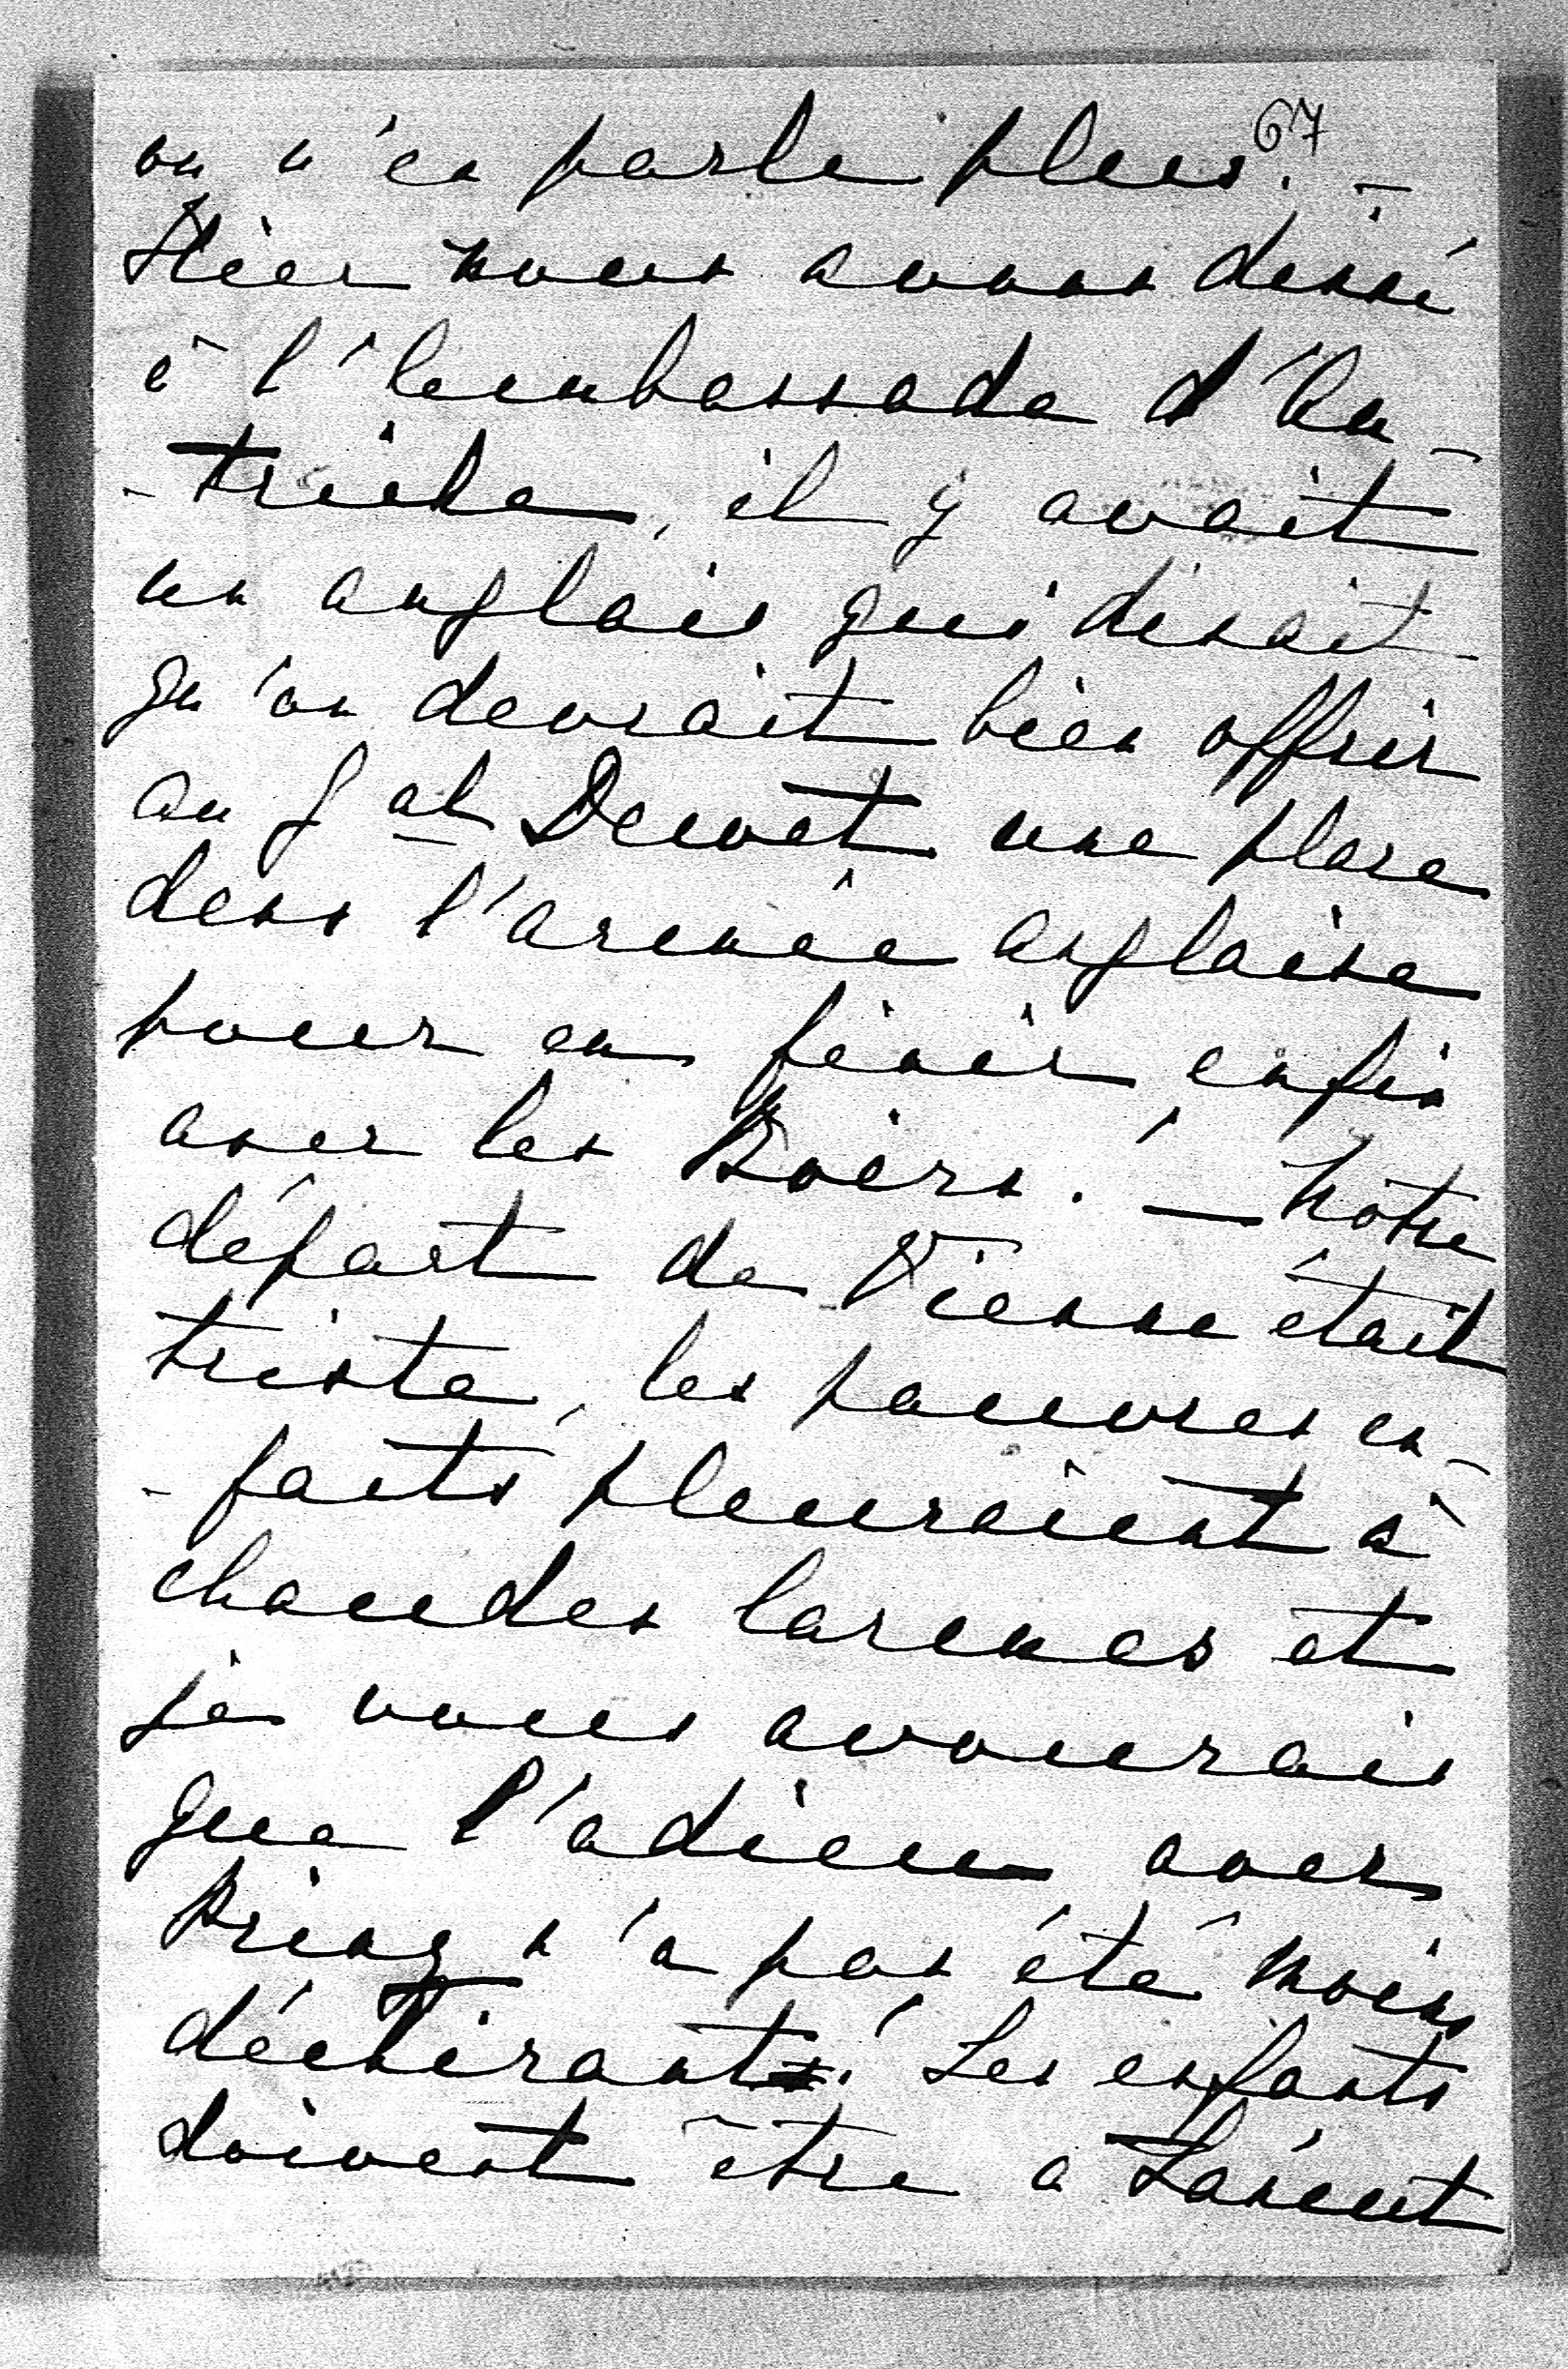 67
on n'en parle plus. —
Hier nous avons diné
à l'Ambassade d'Au-
-triche, il y avait
un anglais qui disait
qu'on devrait bien offrir
au gal Dewet une place
dans l'armée anglaise
pour en finir enfin
avec les Boërs. — Notre
départ de Vienne était
triste, les pauvres en-
-fants pleuraient à
chaudes larmes et
je vous avouerais
que l'adieu avec
Prinz n'a pas été moins
déchirant! Les enfants
doivent être a